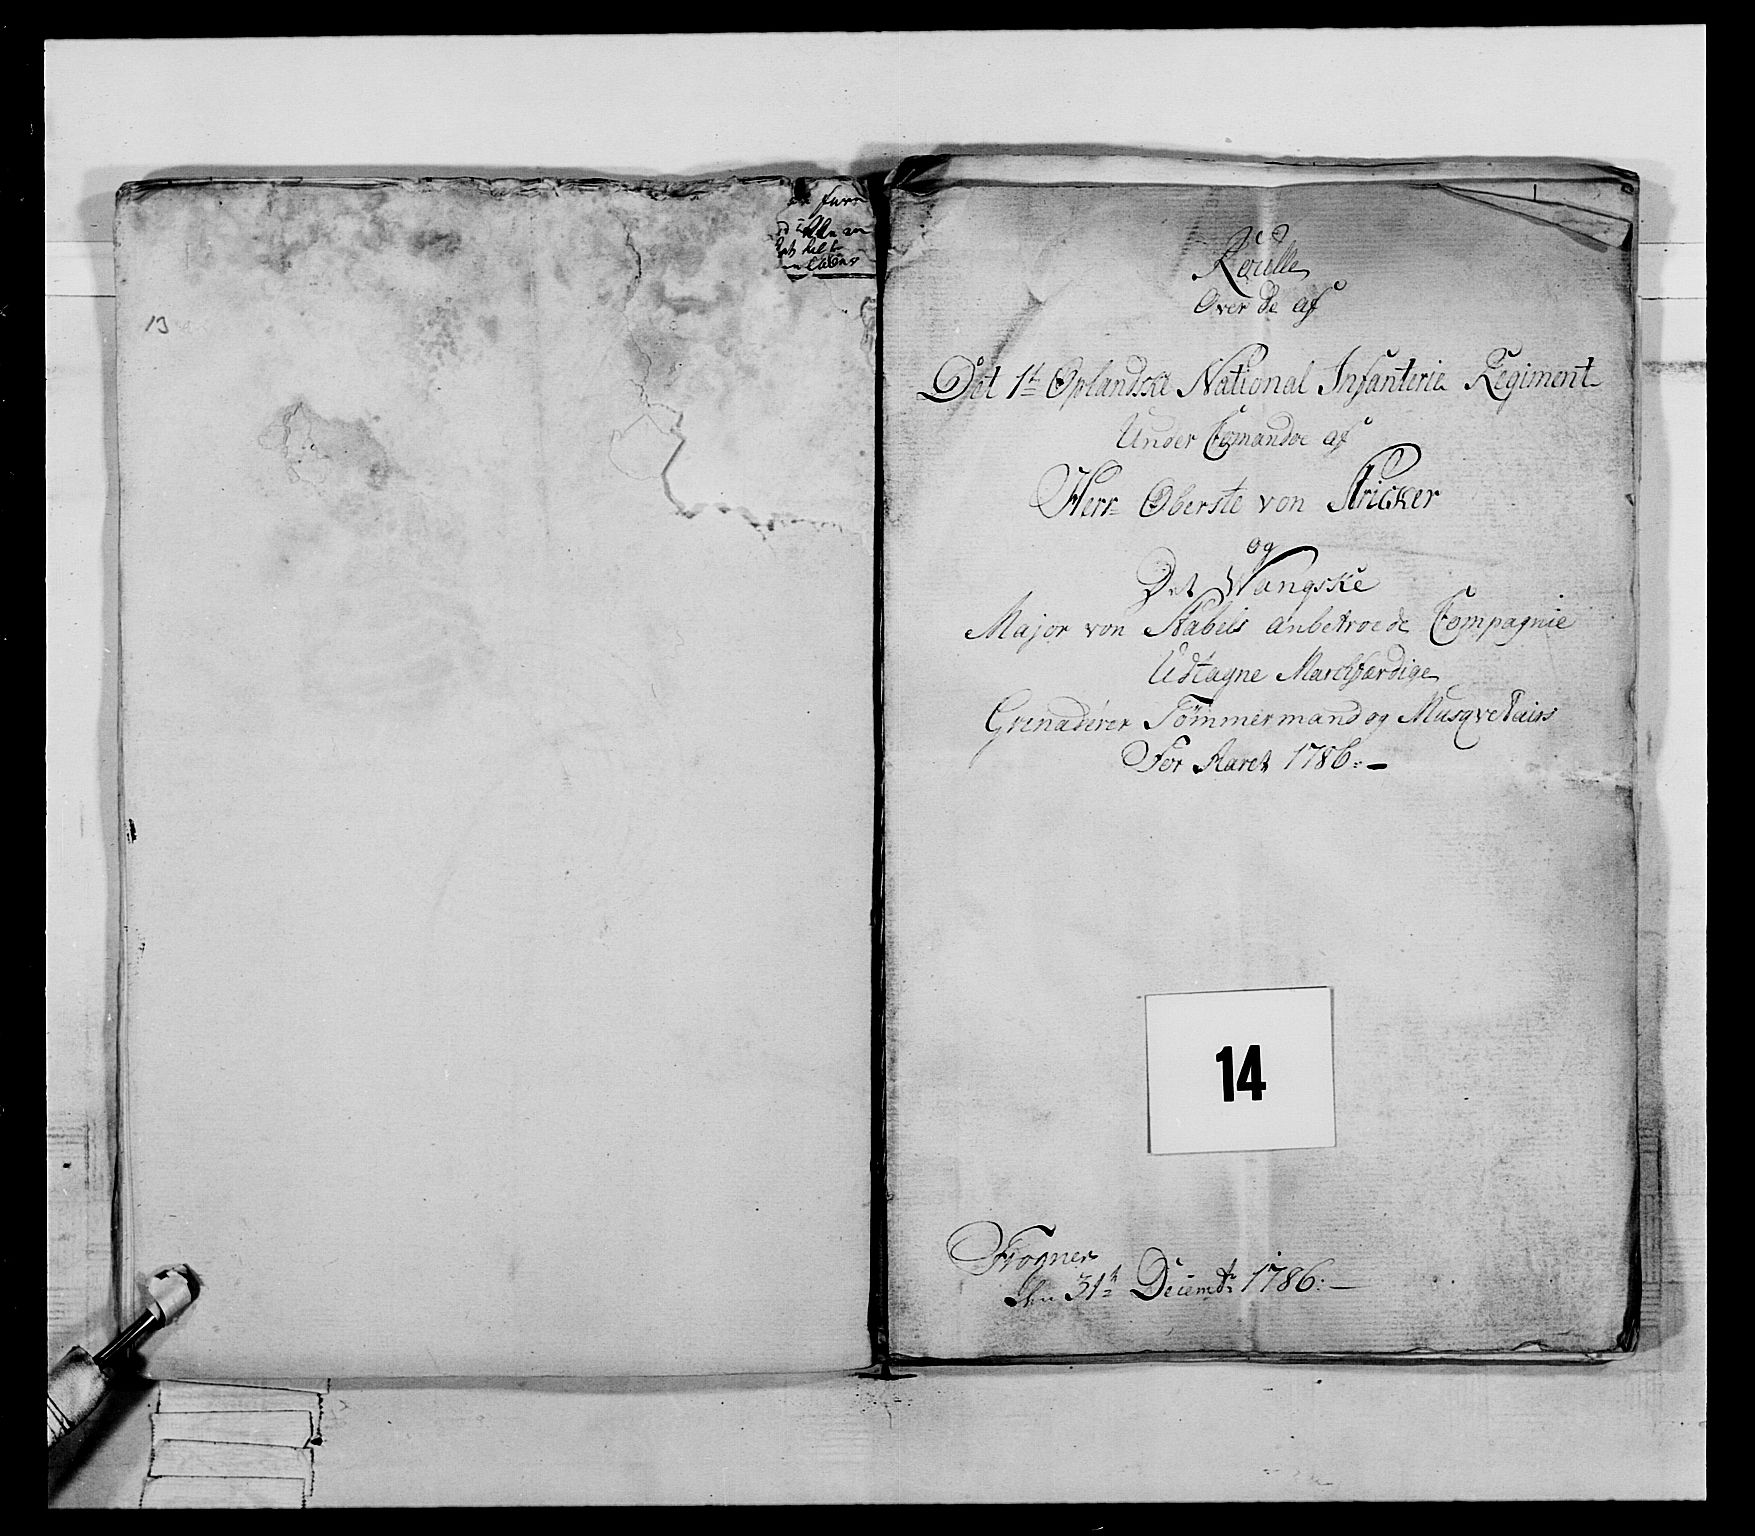 13
Roulle
Over de af
Det 1t Oplandske National Infanterie Regiment
Under Comandoe af
Herr Oberste von Stricker
og
Det Wangske
Major von Stabels anbetroede Compagnie
Udtagne Marchfærdige
Grenaderer Tömmermand og Musqvetairs
For Aaret 1786.
14
Frogner
den 31t Decembr 1786.